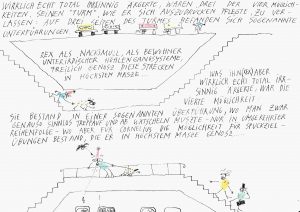 WIRKLICH ECHT TOTAL ÄRGERTE, WAREN DREI DER VIER MÖGLICH-
KEITEN, SEINEN "TURM" WIE ER SICH AUSZUDRÜCKEN PFLEGTE ZU VER-
LASSEN: AUF DREI SEITEN DES TURMES BEFANDEN SICH SOGENANNTE
UNTERFÜHRUNGEN
DER ALS NACKTMULL, ALS BEWOHNER
UNTERIRDISCHER HÖHLENGANGSYSTEME,
FREILICH GENOSS DIESE STRECKEN
IN HÖCHSTEM MASSE.
WAS IHN ABER
WIRKLICH ECHT TOTAL IRR-
SINNIG ÄRGERTE, WAR DIE
VIERTE MÖGLICHKEIT:
SIE BESTAND IN EINER SOGENANNTEN ÜBERFÜHRUNG, WO MAN ZWAR
GENAUSO SINNLOS TREPPAUF UND AB WATSCHELN MUSSTE, NUR IN UMGEKEHRTER
REIHENFOLGE - WO ABER FÜR CORNELIUS DIE MÖGLICHKEIT FÜR SPUCKZIEL-
ÜBUNGEN BESTAND, DIE ER IN HÖCHSTEM MASSE GENOSS